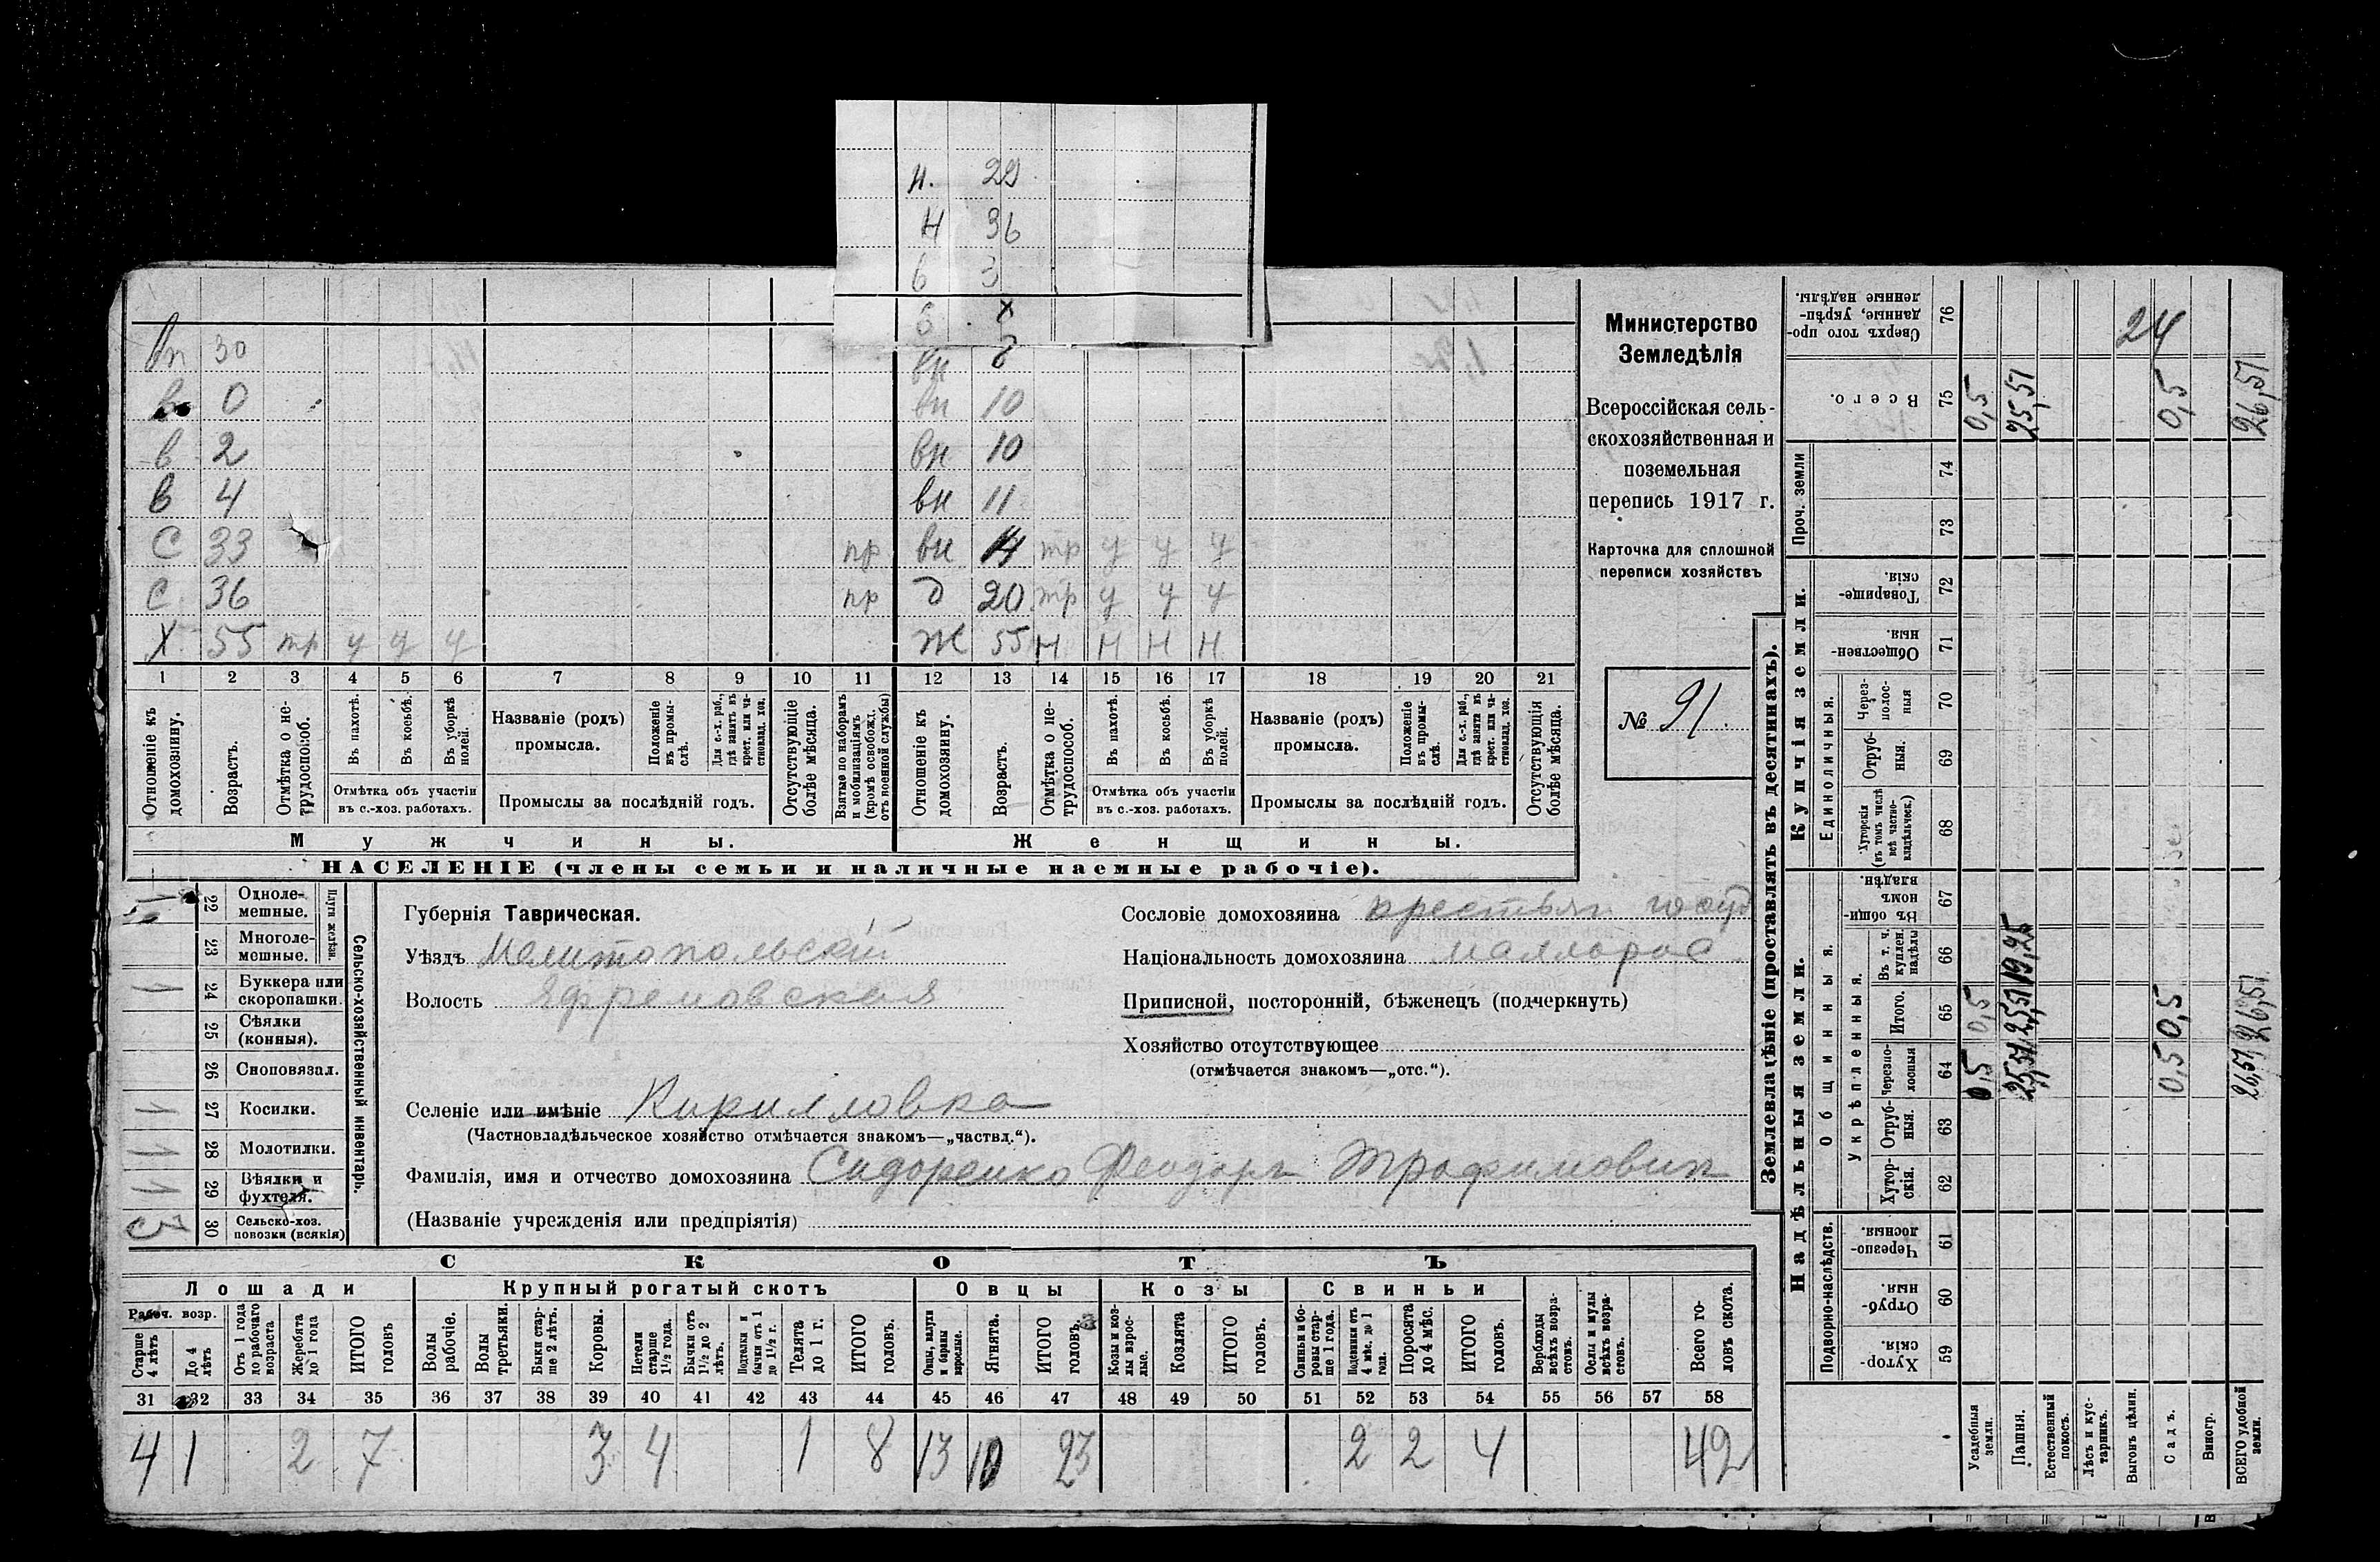 н. 29
н 36
б 3
б х
вп 30 вн 8
в 0 вн 10
в 2 вн 10
в 4 вн 11
с 33 пр вн 14 тр у у у
с 36 пр д 20 тр у у у
х 55 тр у у у ж 55 н н н н
1 2 3 4 5 6 7 8 9 10 11 12 13 14 15 16 17 18 19 20 21
Отношеніе къ домохозяину.
Возрастъ.
Отмѣтка о не-трудоспособ.
Въ пахотѣ.
Въ косьбѣ.
Въ уборкѣ полей.
Отмѣтка объ участіи
въ с.-хоз. работахъ.
Названіе (родъ)
промысла.
Положеніе въ промы-слѣ.
Для с.-х. раб., гдѣ занятъ въ крест. или ча-стновлад. хоз.
Промыслы за послѣдній годъ.
Отсутствующіе болѣе мѣсяца.
Взятые по наборамъ и мобилизаціямъ (кромѣ освобожд. отъ военной службы)
Отношеніе къ домохозяину.
Возрастъ.
Отмѣтка о не-трудоспособ.
Въ пахотѣ.
Въ косьбѣ.
Въ уборкѣ полей.
Отмѣтка объ участіи
въ с.-хоз. работахъ.
Названіе (родъ)
промысла.
Положеніе въ промы-слѣ.
Для с.-х. раб., гдѣ занята въ крест. или ча-стновлад. хоз.
Промыслы за послѣдній годъ.
Отсутствующія болѣе мѣсяца.
Мужчины.
Женщины.
НАСЕЛЕНІЕ (члены семьи и наличные наемные рабочіе).
Министерство
Земледѣлія
Всероссійская сель-
скохозяйственная и
поземельная
перепись 1917 г.
Карточка для сплошной
переписи хозяйствъ
№ 91.
22 Одноле-мешные.
23 Многоле-мешные.
Плуги желѣзн.
1 24 Буккера или скоропашки.
25 Сѣялки (конныя).
26 Сноповязал.
1 27 Косилки.
1 28 Молотилки.
1 29 Вѣялки и фухтеля.
30 Сельско-хоз. повозки (всякія)
Сельско-хозяйственный инвентарь.
Губернія Таврическая.
Уѣздъ Мелитопольскій
Волость Ефремовская
Сословіе домохозяина крестьян госуд
Національность домохозяина маллорос
Приписной, посторонній, бѣженецъ (подчеркнуть)
Хозяйство отсутствующее
(отмѣчается знакомъ—„отс.“).
Селеніе или имѣніе Кирилловка
(Частновладѣльческое хозяйство отмѣчается знакомъ—„частвд.“).
Фамилія, имя и отчество домохозяина Сидоренко Феодоръ Трофимович
(Названіе учрежденія или предпріятія)
СКОТЪ
Лошади
Крупный рогатый скотъ
Овцы
Козы
Свиньи
Рабоч. возр.
Старше 4 лѣтъ
До 4 лѣтъ
Отъ 1 года до рабочаго возраста
Жеребята до 1 года
ИТОГО головъ
Волы рабочіе.
Волы третьяки.
Быки стар-ше 2 лѣтъ.
Коровы.
Нетели старше 1½ года.
Бычки отъ 1½ до 2 лѣтъ.
Подтелки и бычки отъ 1 до 1½ г.
Телята до 1 г.
ИТОГО головъ.
Овцы, валухи и бараны взрослые.
Ягнята.
ИТОГО головъ.
Козы и коз-лы взрос-лые.
Козлята
ИТОГО головъ.
Свиньи и бо-ровы стар-ше 1 года.
Подсвинки отъ 4 мѣс. до 1 года.
Поросята до 4 мѣс.
ИТОГО головъ.
Верблюды всѣхъ возра-стовъ.
Ослы и мулы всѣхъ возра-стовъ.
Всего го-ловъ скота.
31 32 33 34 35 36 37 38 39 40 41 42 43 44 45 46 47 48 49 50 51 52 53 54 55 56 57 58
4 1 2 7 3 4 1 8 13 10 23 2 2 4 42
Землевладѣніе (проставлять въ десятинахъ).
Надѣльныя земли.
Купчія земли.
Подворно-наслѣдств.
Общинныя.
Укрѣпленныя.
Единоличныя.
Проч. земли
Хутор-скія. 59
Отруб-ныя. 60
Черезпо-лосныя. 61
Хутор-скія. 62
Отруб-ныя. 63
Черезпо-лосныя 64
Итого. 65
Въ т. ч. куплен. надѣлы 66
Въ общин-номъ владѣн. 67
Хуторскія (въ томъ числѣ всѣ частно-владѣльческ.) 68
Отруб-ныя. 69
Через-полос-ныя 70
Обществен-ныя. 71
Товарище-скія. 72
73
74
Всего. 75
Сверхъ того про-данные, укрѣп-ленные надѣлы. 76
Усадебныя земли. 0,5 0,5 0,5
Пашня. 25,51 25,51 19,25 25,51
Естественный покосъ.
Лѣсъ и кус-тарникъ.
Выгонъ цѣлин. 24
Садъ. 0,5 0,5 0,5
Виногр.
ВСЕГО удобной земли. 26,51 26,51 26,51